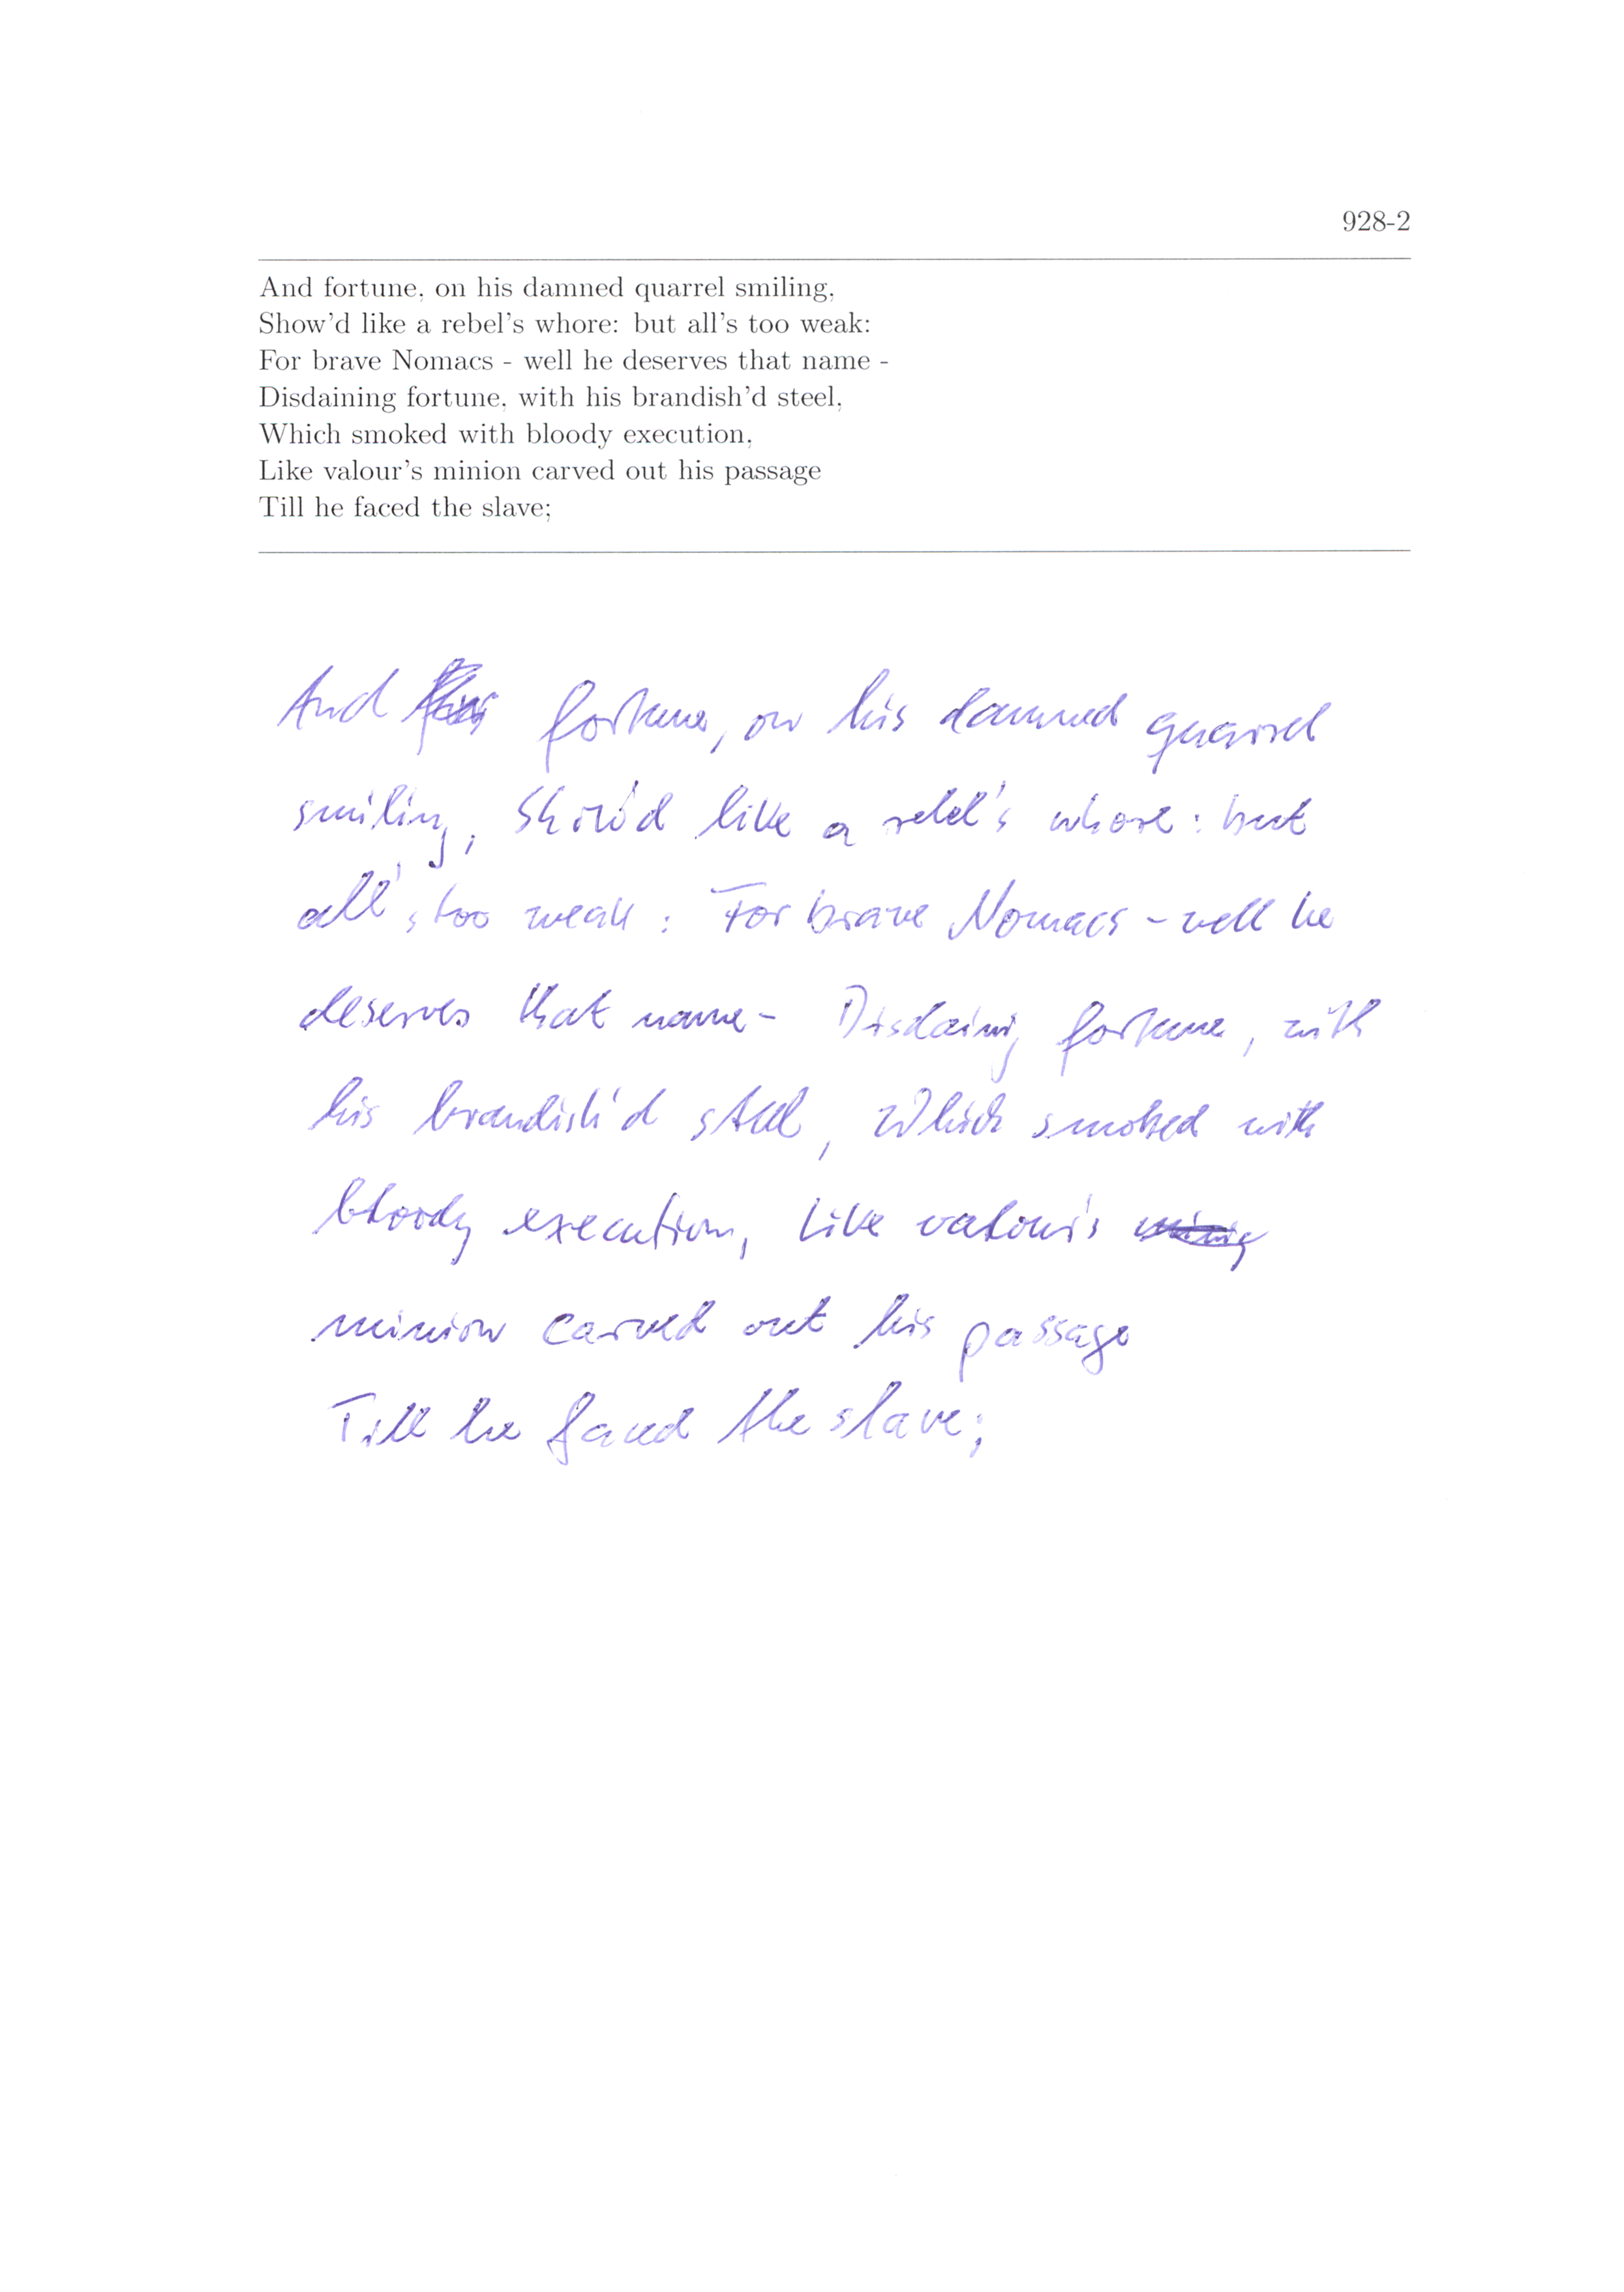 928-2
And fortune, on his damned quarrel smiling,
Show'd like a rebel's whore: but all's too weak:
For brave Nomacs - well he deserves that name -
Disdaining fortune, with his brandish'd steel,
Which smoked with bloody execution,
Like valour's minion carved out his passage
Till he faced the slave;
And fortune, on his damned quarrel
smiling, Show'd like a rebel's whore: but
all's too weak: For brave Nomacs - well he
deserves that name - Disdaining fortune, with
his brandish'd steel, Which smoked with
bloody execution, Like valour's
minion carved out his passage
Till he faced the slave;